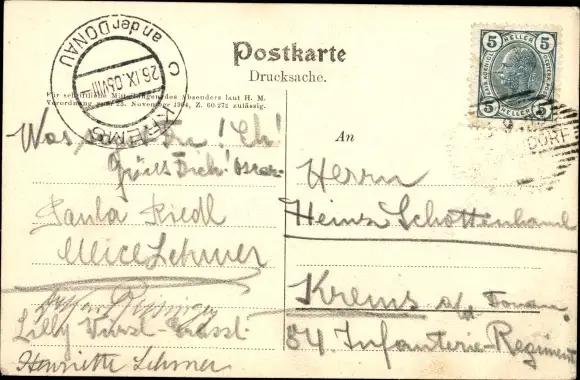 Postkarte
Drucksache.
Für schriftliche Mitteilungen des Absenders laut H. M.
Verordnung vom 25. November 1904, Z. 60.272 zulässig.
KREMS an der DONAU
26.IX.05 VIII
C
5 HELLER 5
5 HELLER 5
DORF
Was Du! Ch!
Grüss Dich! Oscar
Paula Riedl
Alice Lehner
Lilly
Henriette Lehner
An
Herrn
Heinz Schottenhaml
Krems a/d Donau
84 Infanterie-Regiment